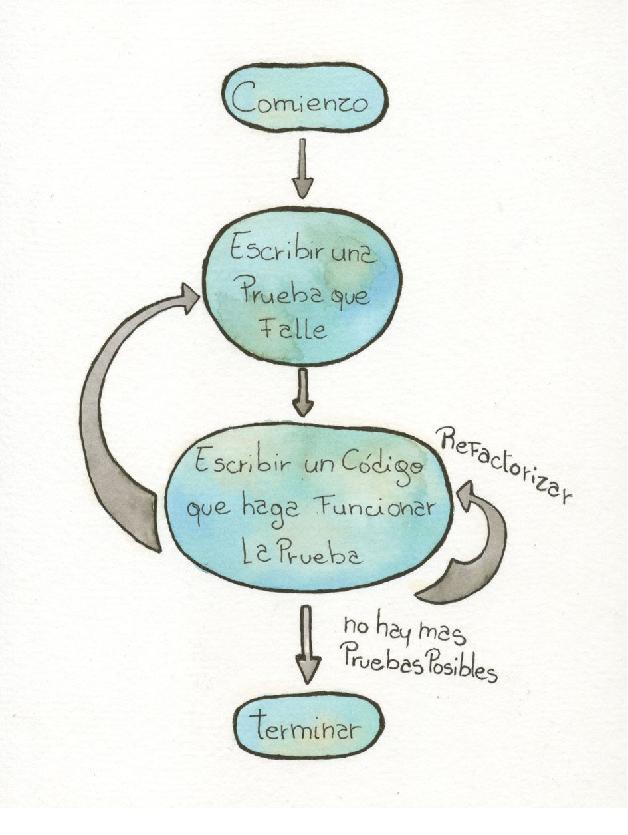 Comienzo
Escribir una
Prueba que
Falle
Escribir un Código
que haga Funcionar
La Prueba
Refactorizar
no hay mas
Pruebas Posibles
terminar